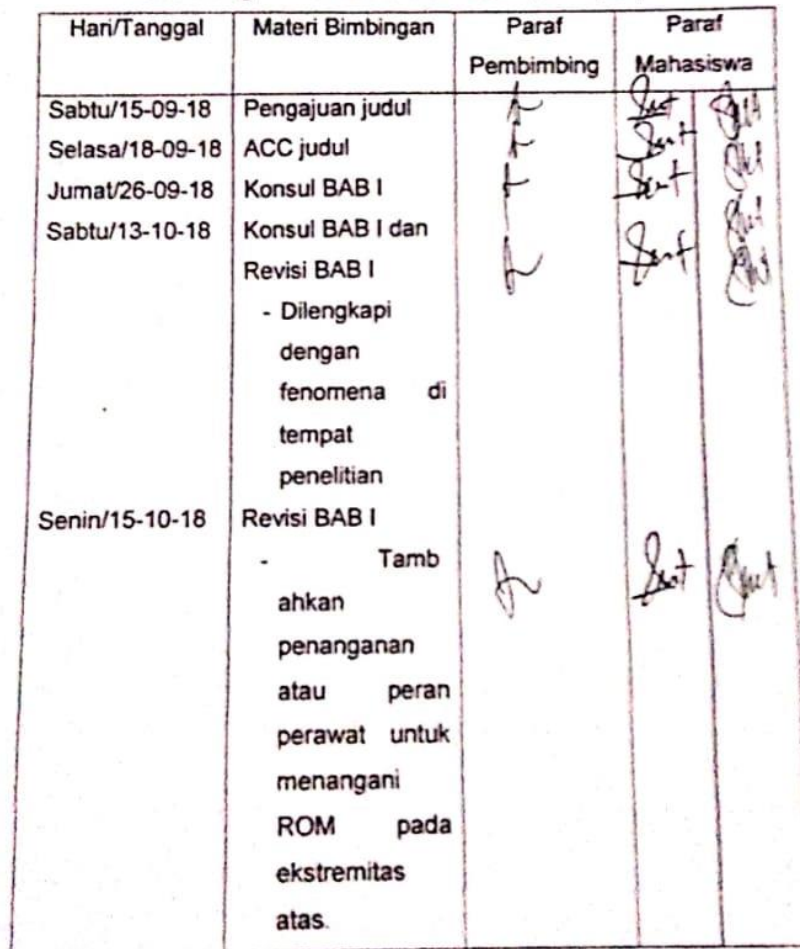 Hari/Tanggal Materi Bimbingan Paraf Paraf
Pembimbing Mahasiswa
Sabtu/15-09-18 Pengajuan judul
Selasa/18-09-18 ACC judul
Jumat/26-09-18 Konsul BAB I
Sabtu/13-10-18 Konsul BAB I dan
Revisi BAB I
- Dilengkapi
dengan
fenomena di
tempat
penelitian
Senin/15-10-18 Revisi BAB I
- Tamb
ahkan
penanganan
atau peran
perawat untuk
menangani
ROM pada
ekstremitas
atas.